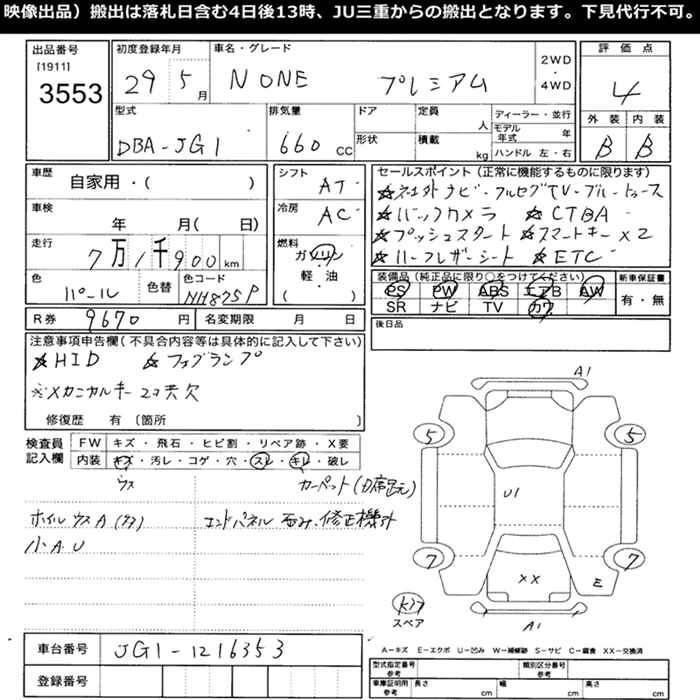 映像出品）搬出は落札日含む4日後13時、JU三重からの搬出となります。下見代行不可。
出品番号
[1911]
3553
初度登録年月
29 5 月
車名・グレード
N ONE プレミアム
2WD
・
4WD
評価点
4
外装 内装
B B
型式
DBA-JG1
排気量
660 CC
ドア
形状
定員 人
積載 kg
ディーラー・並行
モデル年式 年
ハンドル 左・右
車歴
自家用・( )
車検
年 月( 日)
走行
7万1千900km
色
パール
色替
色コード
NH875P
シフト
AT
冷房
AC
燃料
ガソリン
軽・油
( )
セールスポイント（正常に機能するものに限ります）
☆社外ナビ・フルセグTV・ブルートゥース
☆バックカメラ ☆CTBA
☆プッシュスタート ☆スマートキー×2
☆ハーフレザーシート ☆ETC
装備品（純正品に限り○をつけてください）
PS PW ABS エアB AW
SR ナビ TV カワ
新車保証書
有・無
R券 9670 円
名変期限 月 日
後日品
注意事項申告欄（不具合内容等は具体的に記入して下さい）
☆HID ☆フォグランプ
※メカニカルキー2コ共欠
修復歴 有〔箇所 〕
検査員
記入欄
FW キズ・飛石・ヒビ割・リペア跡・X要
内装 キズ・汚レ・コゲ・穴・スレ・キレ・破レ
ウス
カーペット(D席足元)
ホイルウスA(クス)
エンドパネル 歪み・修正機外
小AU
A1
5 5
U1
7 7
XX
E
スペア
A1
A=キズ E=エクボ U=凹み W=補修跡 S=サビ C=腐食 XX=交換済
車台番号 JG1-1216353
登録番号
型式指定番号
参考
類別区分番号
参考
車庫証明用
参考
長さ cm 幅 cm 高さ cm